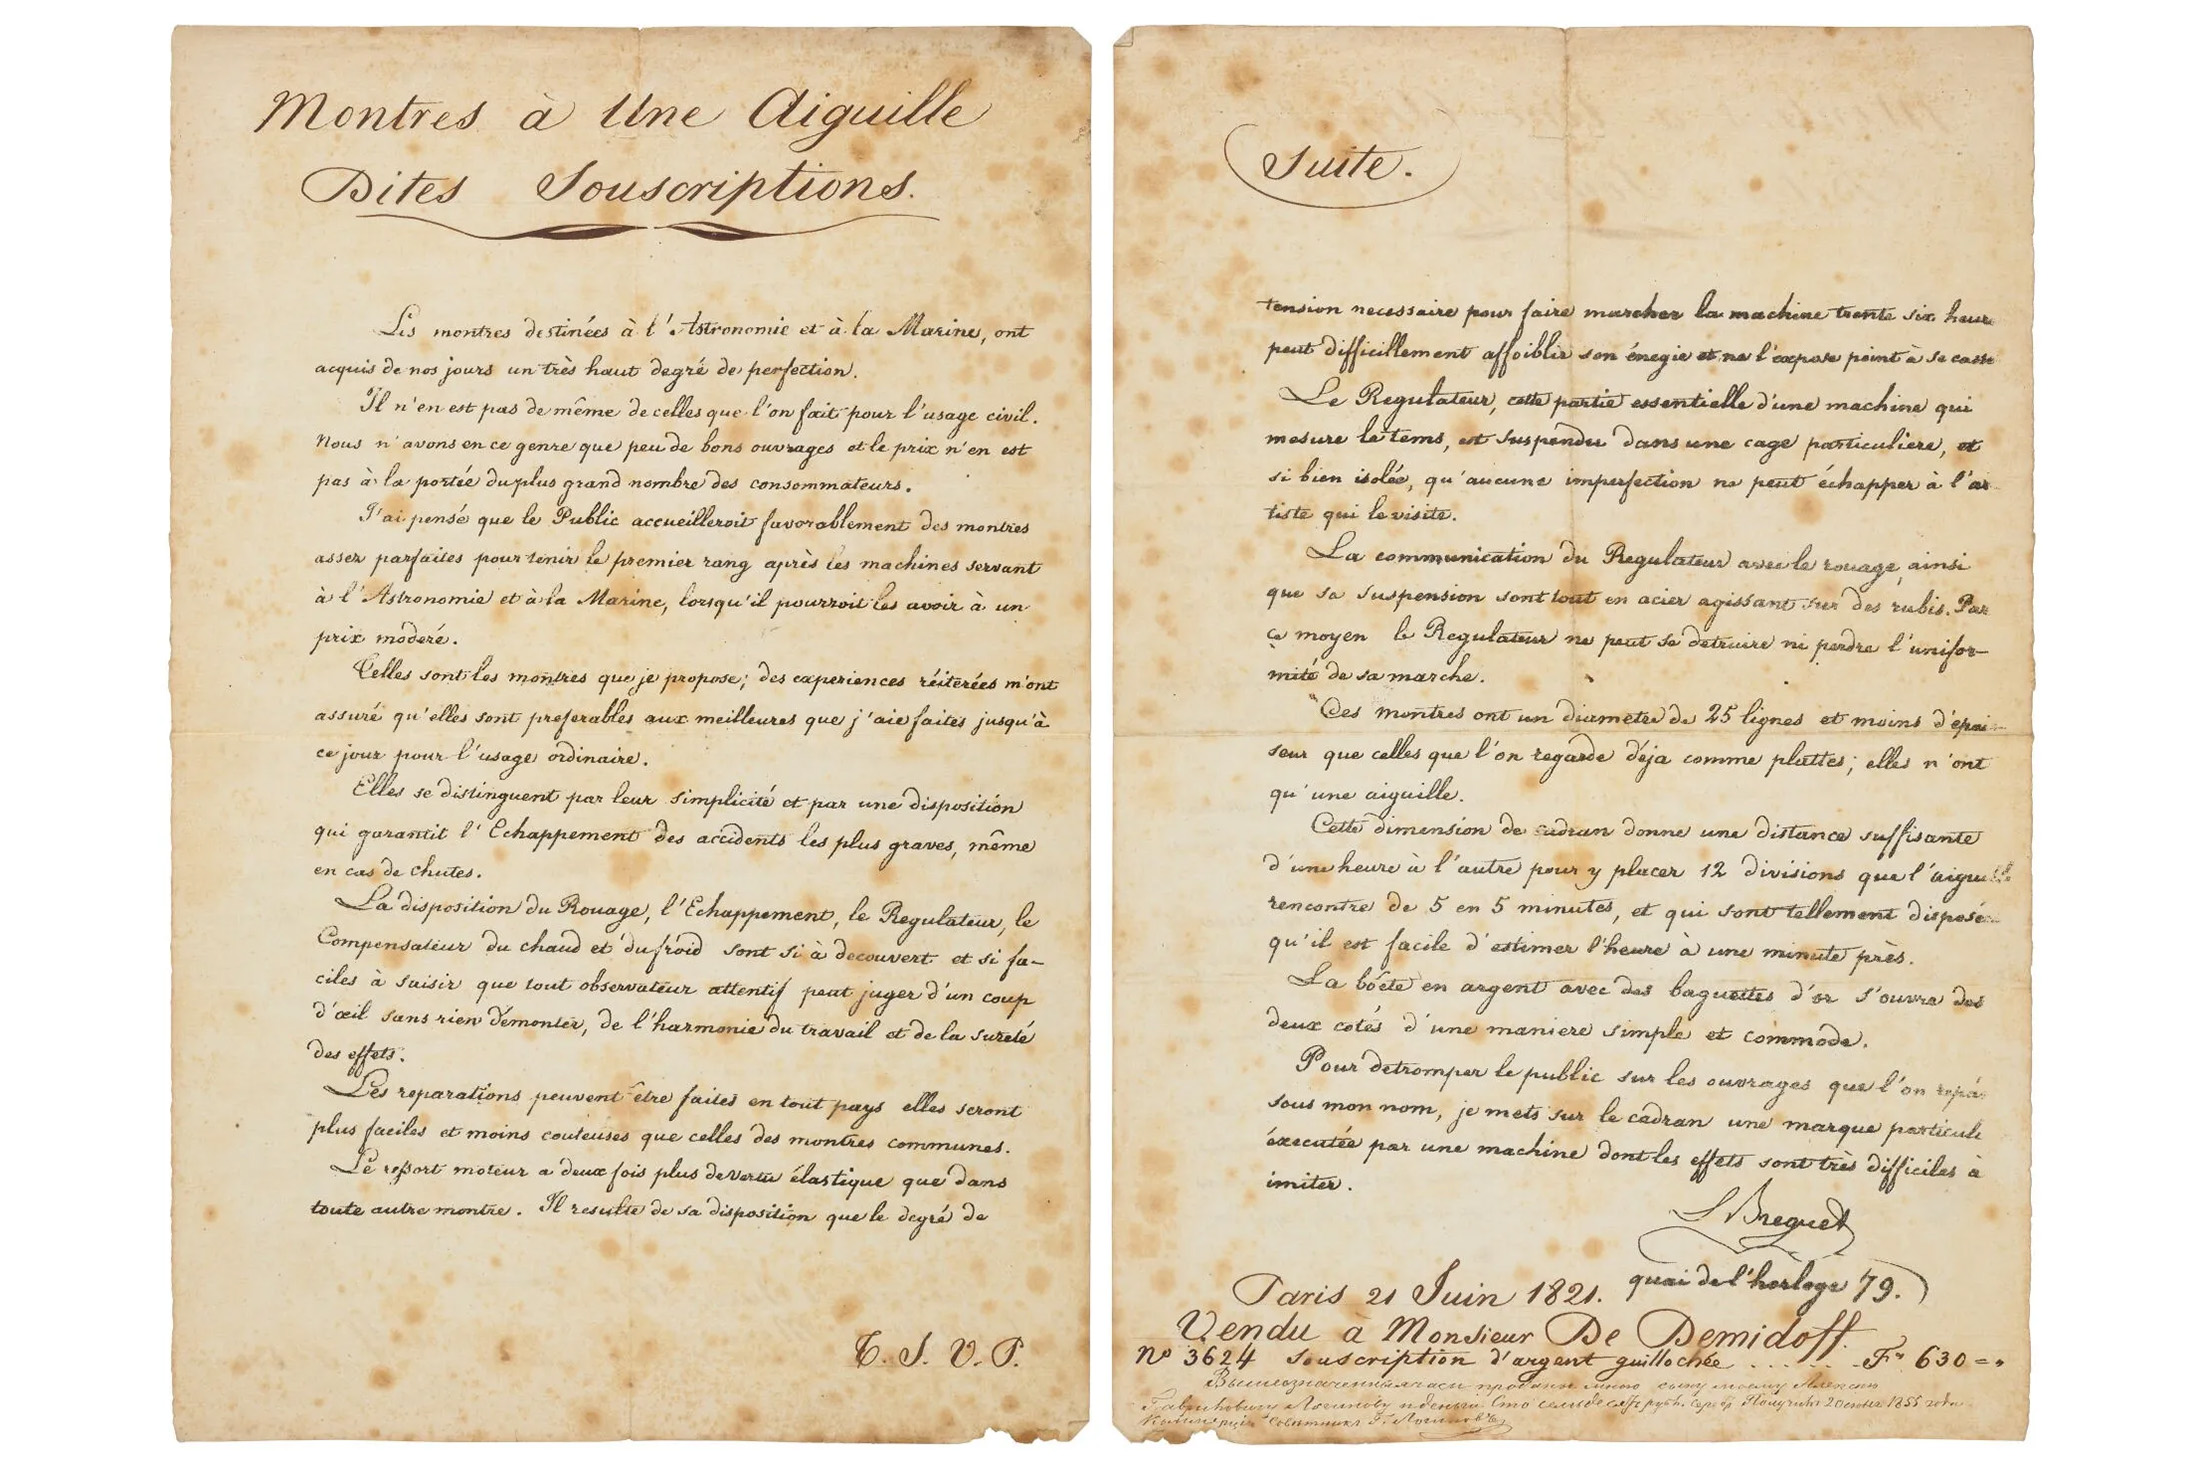 Montres à Une Aiguille
Dites Souscriptions.
Les montres destinées à l'Astronomie et à la Marine, ont
acquis de nos jours un très haut degré de perfection.
Il n'en est pas de même de celles que l'on fait pour l'usage civil.
Nous n'avons en ce genre que peu de bons ouvrages et le prix n'en est
pas à la portée du plus grand nombre des consommateurs.
J'ai pensé que le Public accueilleroit favorablement des montres
assez parfaites pour tenir le premier rang après les machines servant
à l'Astronomie et à la Marine, lorsqu'il pourroit les avoir à un
prix moderé.
Telles sont les montres que je propose; des experiences réiterées m'ont
assuré qu'elles sont preferables aux meilleures que j'aie faites jusqu'à
ce jour pour l'usage ordinaire.
Elles se distinguent par leur simplicité et par une disposition
qui garantit l'Echappement des accidents les plus graves, même
en cas de chutes.
La disposition du Rouage, l'Echappement, le Regulateur, le
Compensateur du chaud et du froid sont si à decouvert et si fa-
ciles à saisir que tout observateur attentif peut juger d'un coup
d'œil sans rien démonter, de l'harmonie du travail et de la sureté
des effets.
Les reparations peuvent être faites en tout pays elles seront
plus faciles et moins couteuses que celles des montres communes.
Le ressort moteur a deux fois plus de vertu élastique que dans
toute autre montre. Il resulte de sa disposition que le degré de
T. S. V. P.
Suite.
tension necessaire pour faire marcher la machine trente six heur
peut difficillement affoiblir son énegie et ne l'expose point à se casse
Le Regulateur, cette partie essentielle d'une machine qui
mesure le tems, est suspendu dans une cage particuliere, et
si bien isolée, qu'aucune imperfection ne peut échapper à l'ar
tiste qui le visite.
La communication du Regulateur avec le rouage, ainsi
que sa suspension sont tout en acier agissant sur des rubis. Par
ce moyen le Regulateur ne peut se detruire ni perdre l'unifor-
mité de sa marche.
Ces montres ont un diametre de 25 lignes et moins d'epai-
seur que celles que l'on regarde déja comme plattes; elles n'ont
qu'une aiguille.
Cette dimension de cadran donne une distance suffisante
d'une heure à l'autre pour y placer 12 divisions que l'aiguille
rencontre de 5 en 5 minutes, et qui sont tellement disposé
qu'il est facile d'estimer l'heure à une minute près.
La böete en argent avec des baguettes d'or s'ouvre des
deux cotés d'une maniere simple et commode.
Pour detromper le public sur les ouvrages que l'on repá
sous mon nom, je mets sur le cadran une marque particuli
éxecutée par une machine dont les effets sont très difficiles à
imiter.
Breguet
quai de l'horloge 79.
Paris 21 Juin 1821.
Vendu à Monsieur De Demidoff.
No 3624 souscription d'argent guillochée . . . . . . Fs 630 =
Вышеозначенныя часы проданы мною сыну моему Алексею
Гавриловичу 1855 года
Советникъ